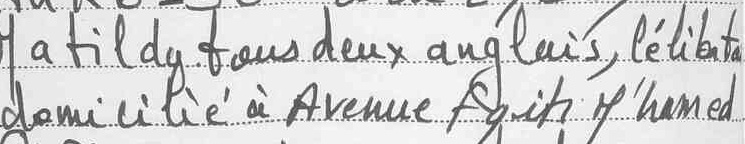 Matildy tous deux anglais, Célibata
domicilié à Avenue Fqih M'hamed